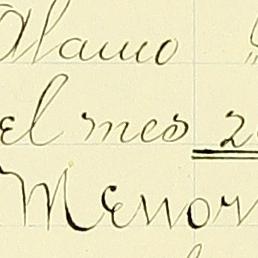 Alamo
el mes 2
Menor